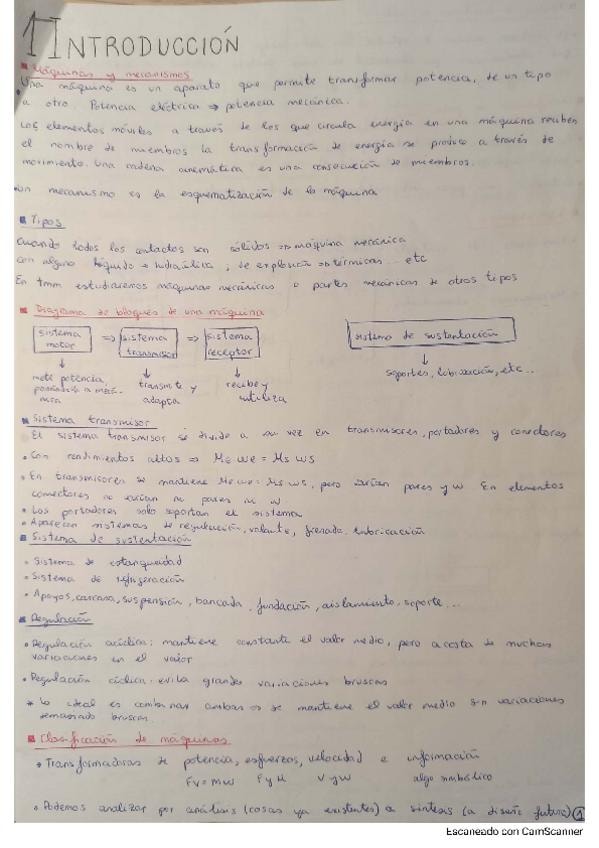 1 INTRODUCCIÓN
Máquinas y mecanismos
Una máquina es un aparato que permite transformar potencia, de un tipo
a otro. Potencia eléctrica → potencia mecánica.
Los elementos móviles a través de los que circula energía en una máquina reciben
el nombre de miembros la transformación de energía se produce a través de
movimiento. Una cadena cinemática es una consecución de miembros.
Un mecanismo es la esquematización de la máquina
Tipos
Cuando todos los contactos son sólidos => máquina mecánica
con alguno líquido → hidráulica, de explosión => térmicas... etc
En tmm estudiaremos máquinas mecánicas o partes mecánicas de otros tipos
Diagrama de bloques de una máquina
sistema motor => sistema transmisor => sistema receptor
sistema de sustentación
mete potencia,
transmite y adapta
recibe y utiliza
soportes, lubricación, etc...
Sistema transmisor
El sistema transmisor se divide a su vez en transmisores, portadores y conectores
• Con rendimientos altos => Me we = Ms ws
• En transmisores se mantiene Me we = Ms ws, pero varían pares y w. En elementos
conectores no varían ni pares ni w.
• Los portadores solo soportan el sistema
• Aparecen sistemas de regulación, volante, frenada, lubricación
Sistema de sustentación
• Sistema de estanqueidad
• Sistema de refrigeración
• Apoyos, carcasa, suspensión, bancada, fundación, aislamiento, soporte...
Regulación
• Regulación acíclica: mantiene constante el valor medio, pero a costa de muchas
variaciones en el valor
• Regulación cíclica: evita grandes variaciones bruscas
* Lo ideal es combinar ambas se mantiene el valor medio sin variaciones
demasiado bruscas.
Clasificación de máquinas
• Transformadoras de potencia, esfuerzos, velocidad e información
Fv = mw F y M v y w algo simbólico
• Podemos analizar por análisis (cosas ya existentes) o síntesis (a diseño futuro) 1
Escaneado con CamScanner